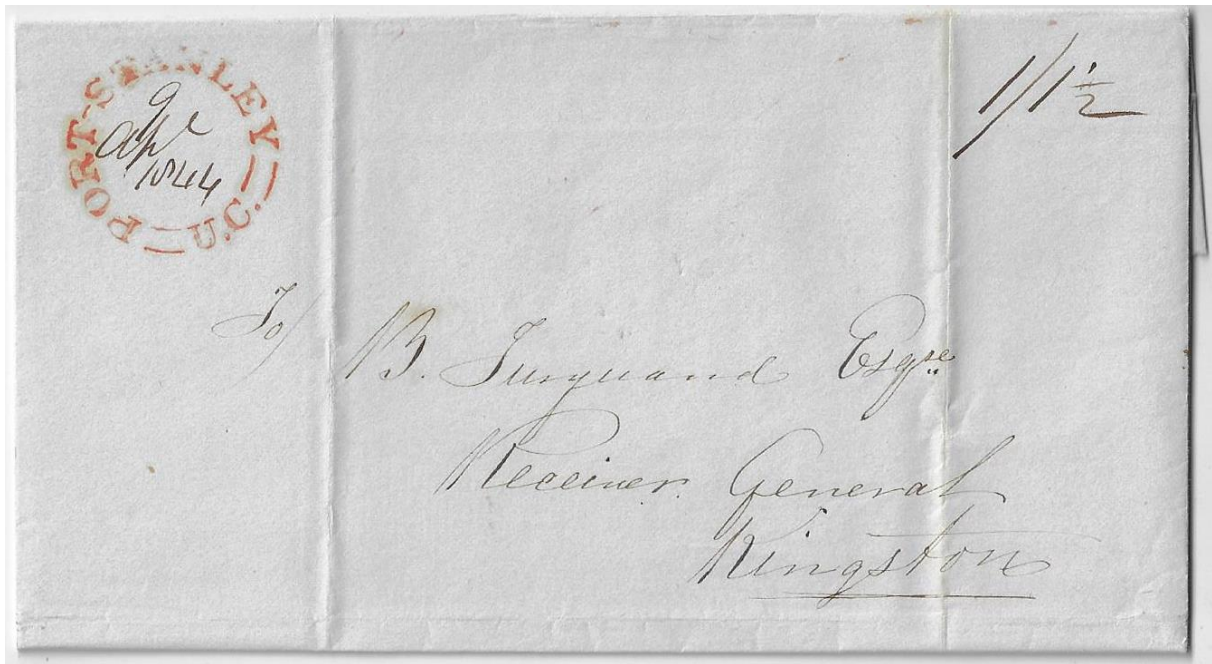 PORT-STANLEY U.C.
9
Apl
1844
1/1½
To/
B. Turquand Esqre
Receiver General
Kingston